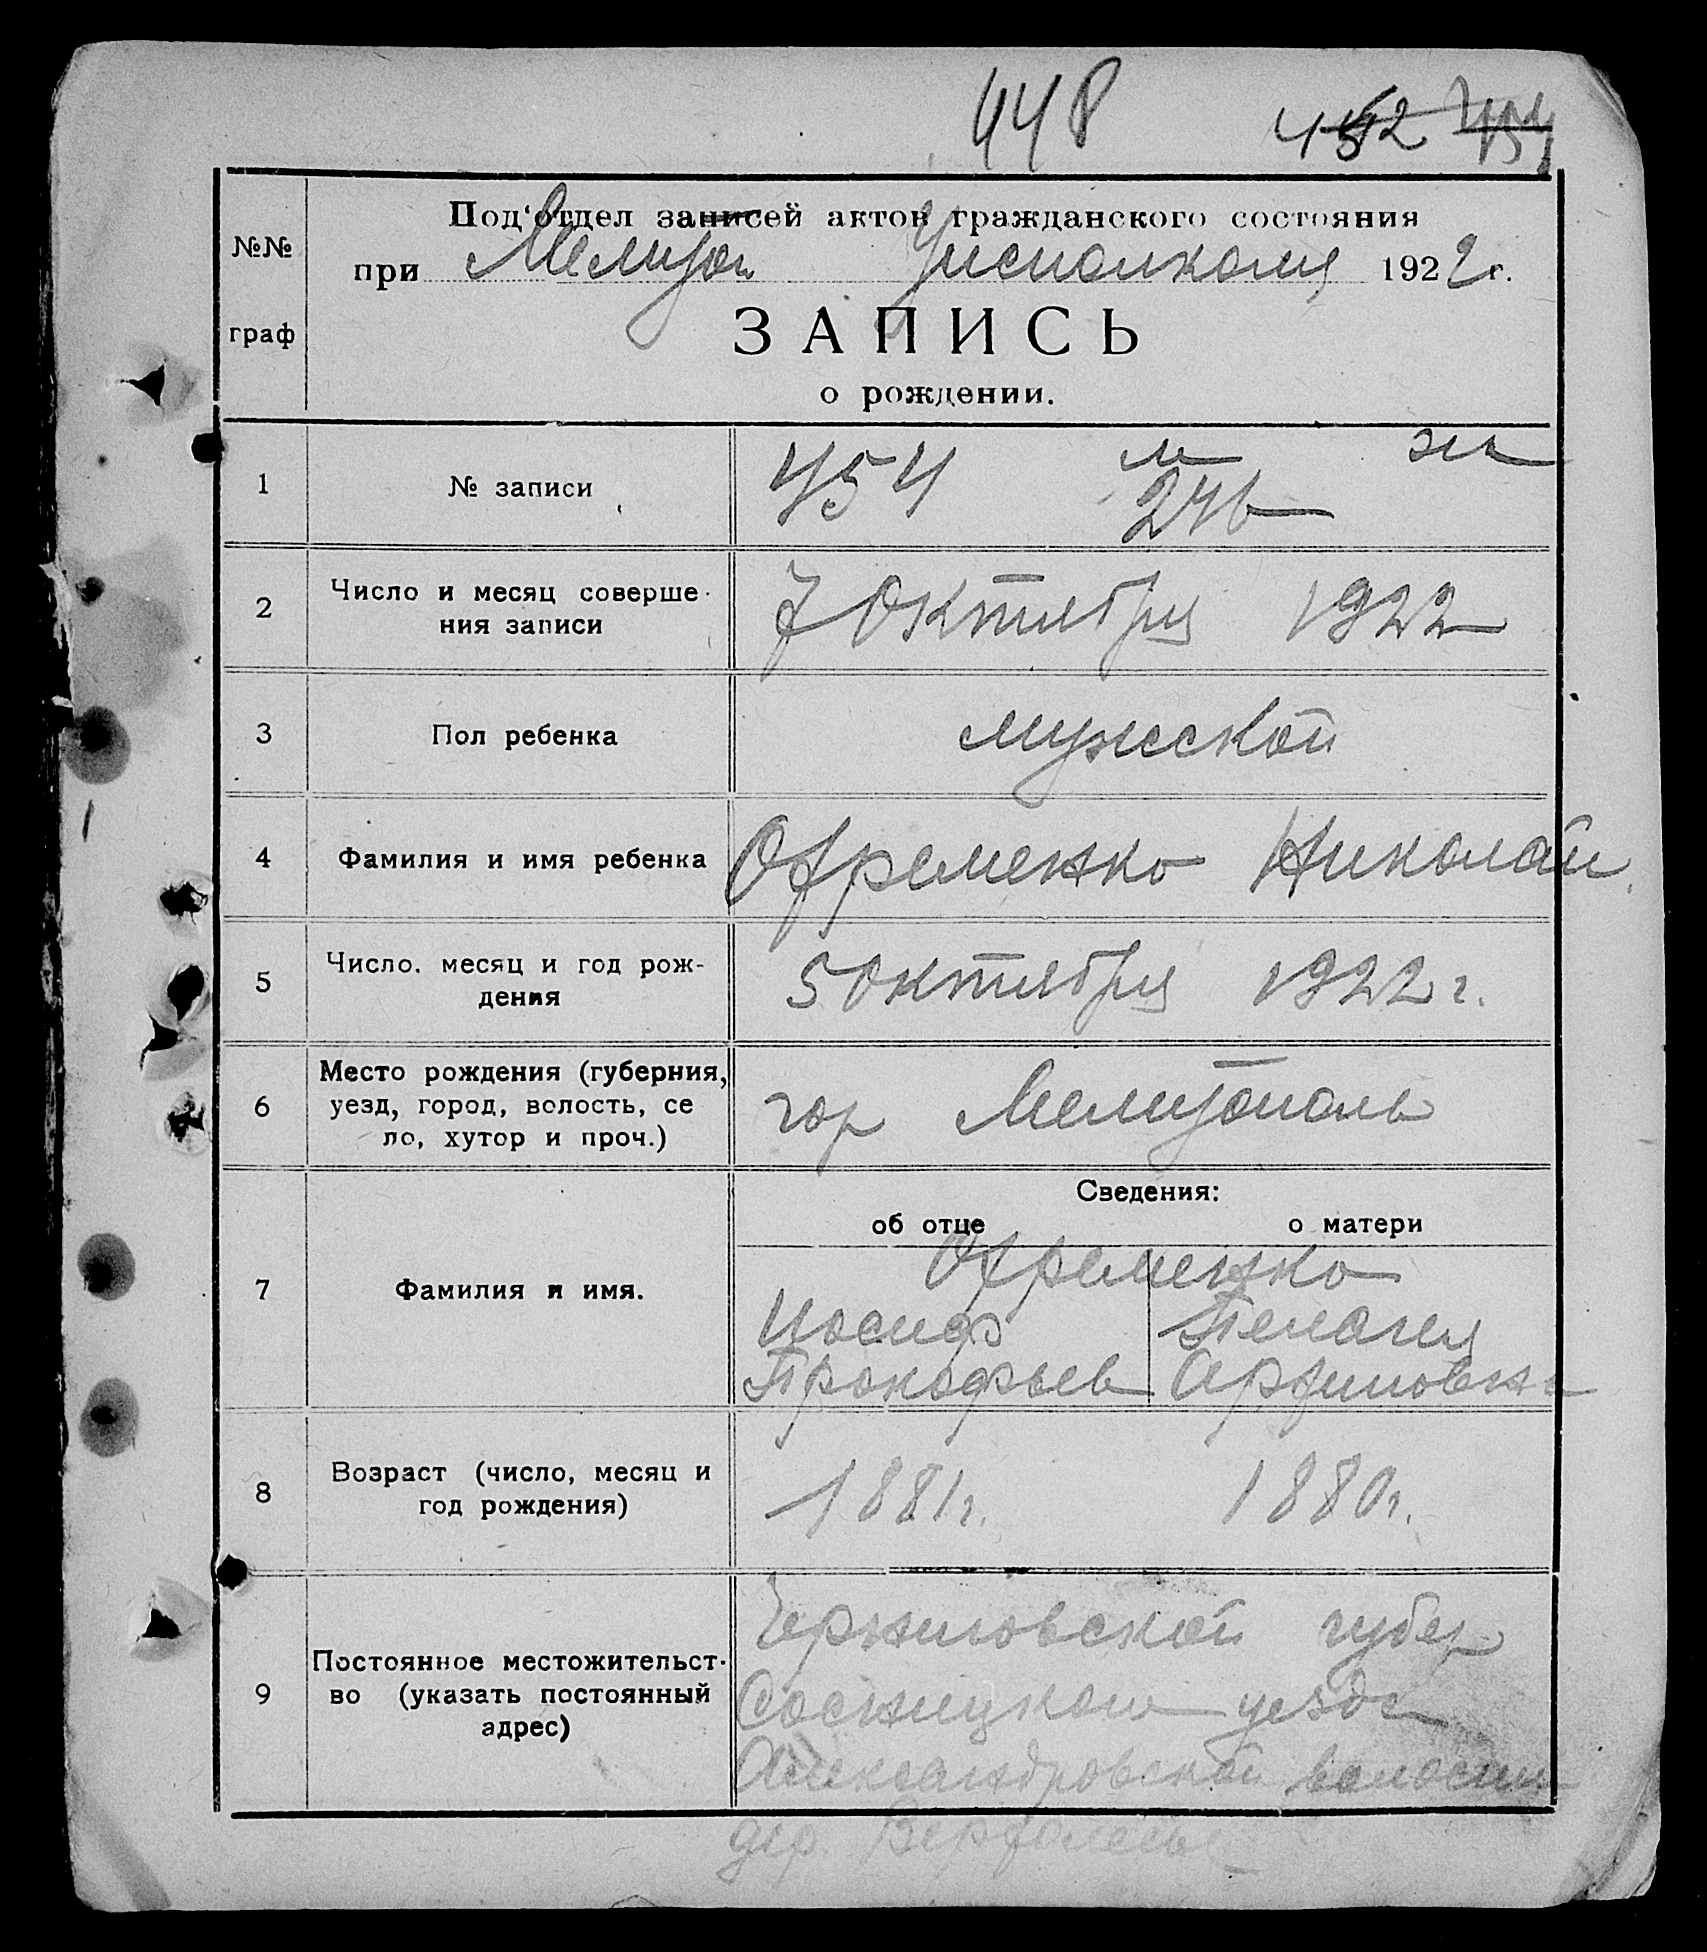 448 452
Под‘отдел записей актов гражданского состояния
№№
при Мелитоп Уисполкома 1922 г.
граф
ЗАПИСЬ
о рождении.
1 № записи 454 м ж
246
2 Число и месяц соверше-
ния записи
7 Октября 1922
3 Пол ребенка мужской
4 Фамилия и имя ребенка Офременко Николай
5 Число. месяц и год рож-
дения
5 Октября 1922 г.
6 Место рождения (губерния,
уезд, город, волость, се
ло, хутор и проч.)
гор Мелитополь
Сведения:
об отце о матери
7 Фамилия и имя.
Офременко
Иосиф Пелагея
Прокофьев
8 Возраст (число, месяц и
год рождения)
1881г. 1880г.
9 Постоянное местожительст-
во (указать постоянный
адрес)
Черниговской губер
Сосницкого уезда
Александровской волости
дер.